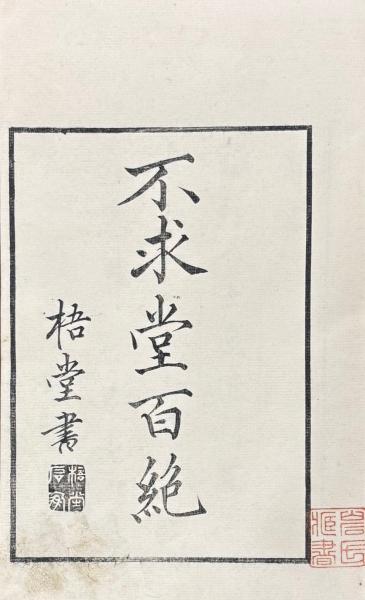 不求堂百絶
梧堂書